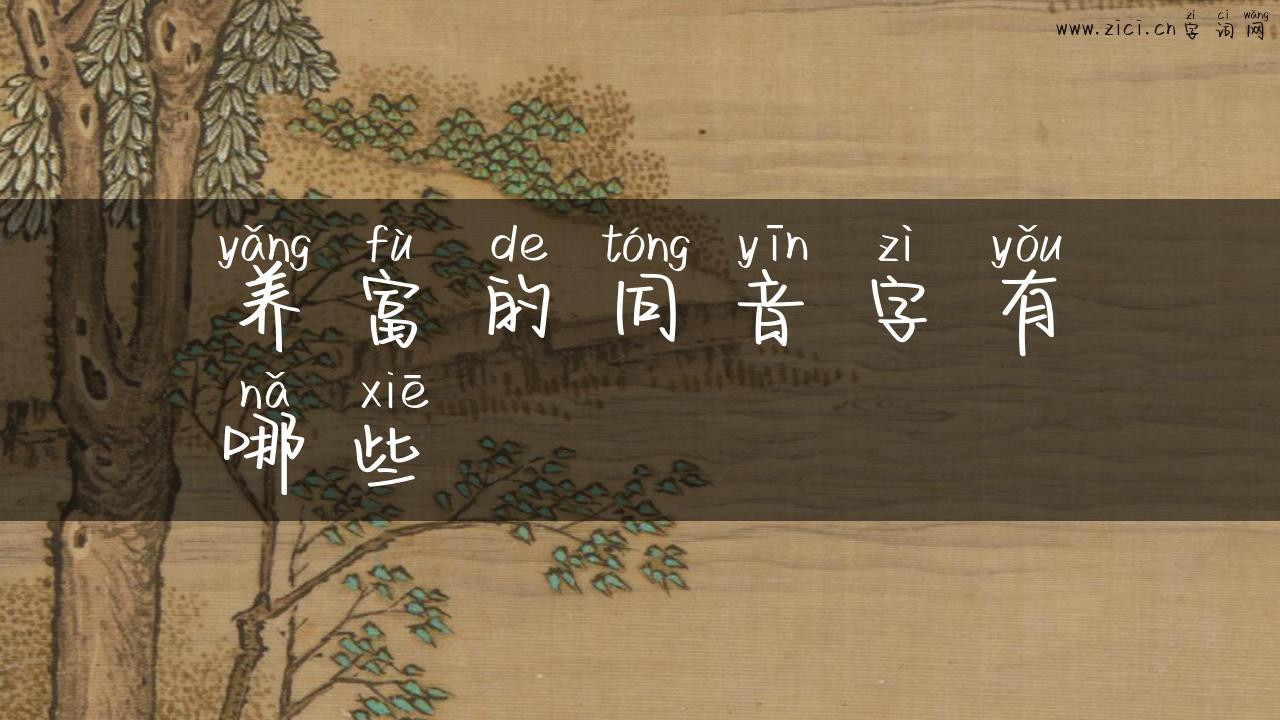 zì cí wǎng
www.zici.cn 字词网
yǎng fù de tóng yīn zì yǒu
养富的同音字有
nǎ xiē
哪些